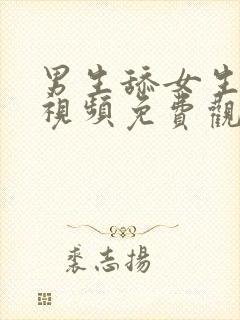 男生舔女生
視頻免費觀
裘志揚